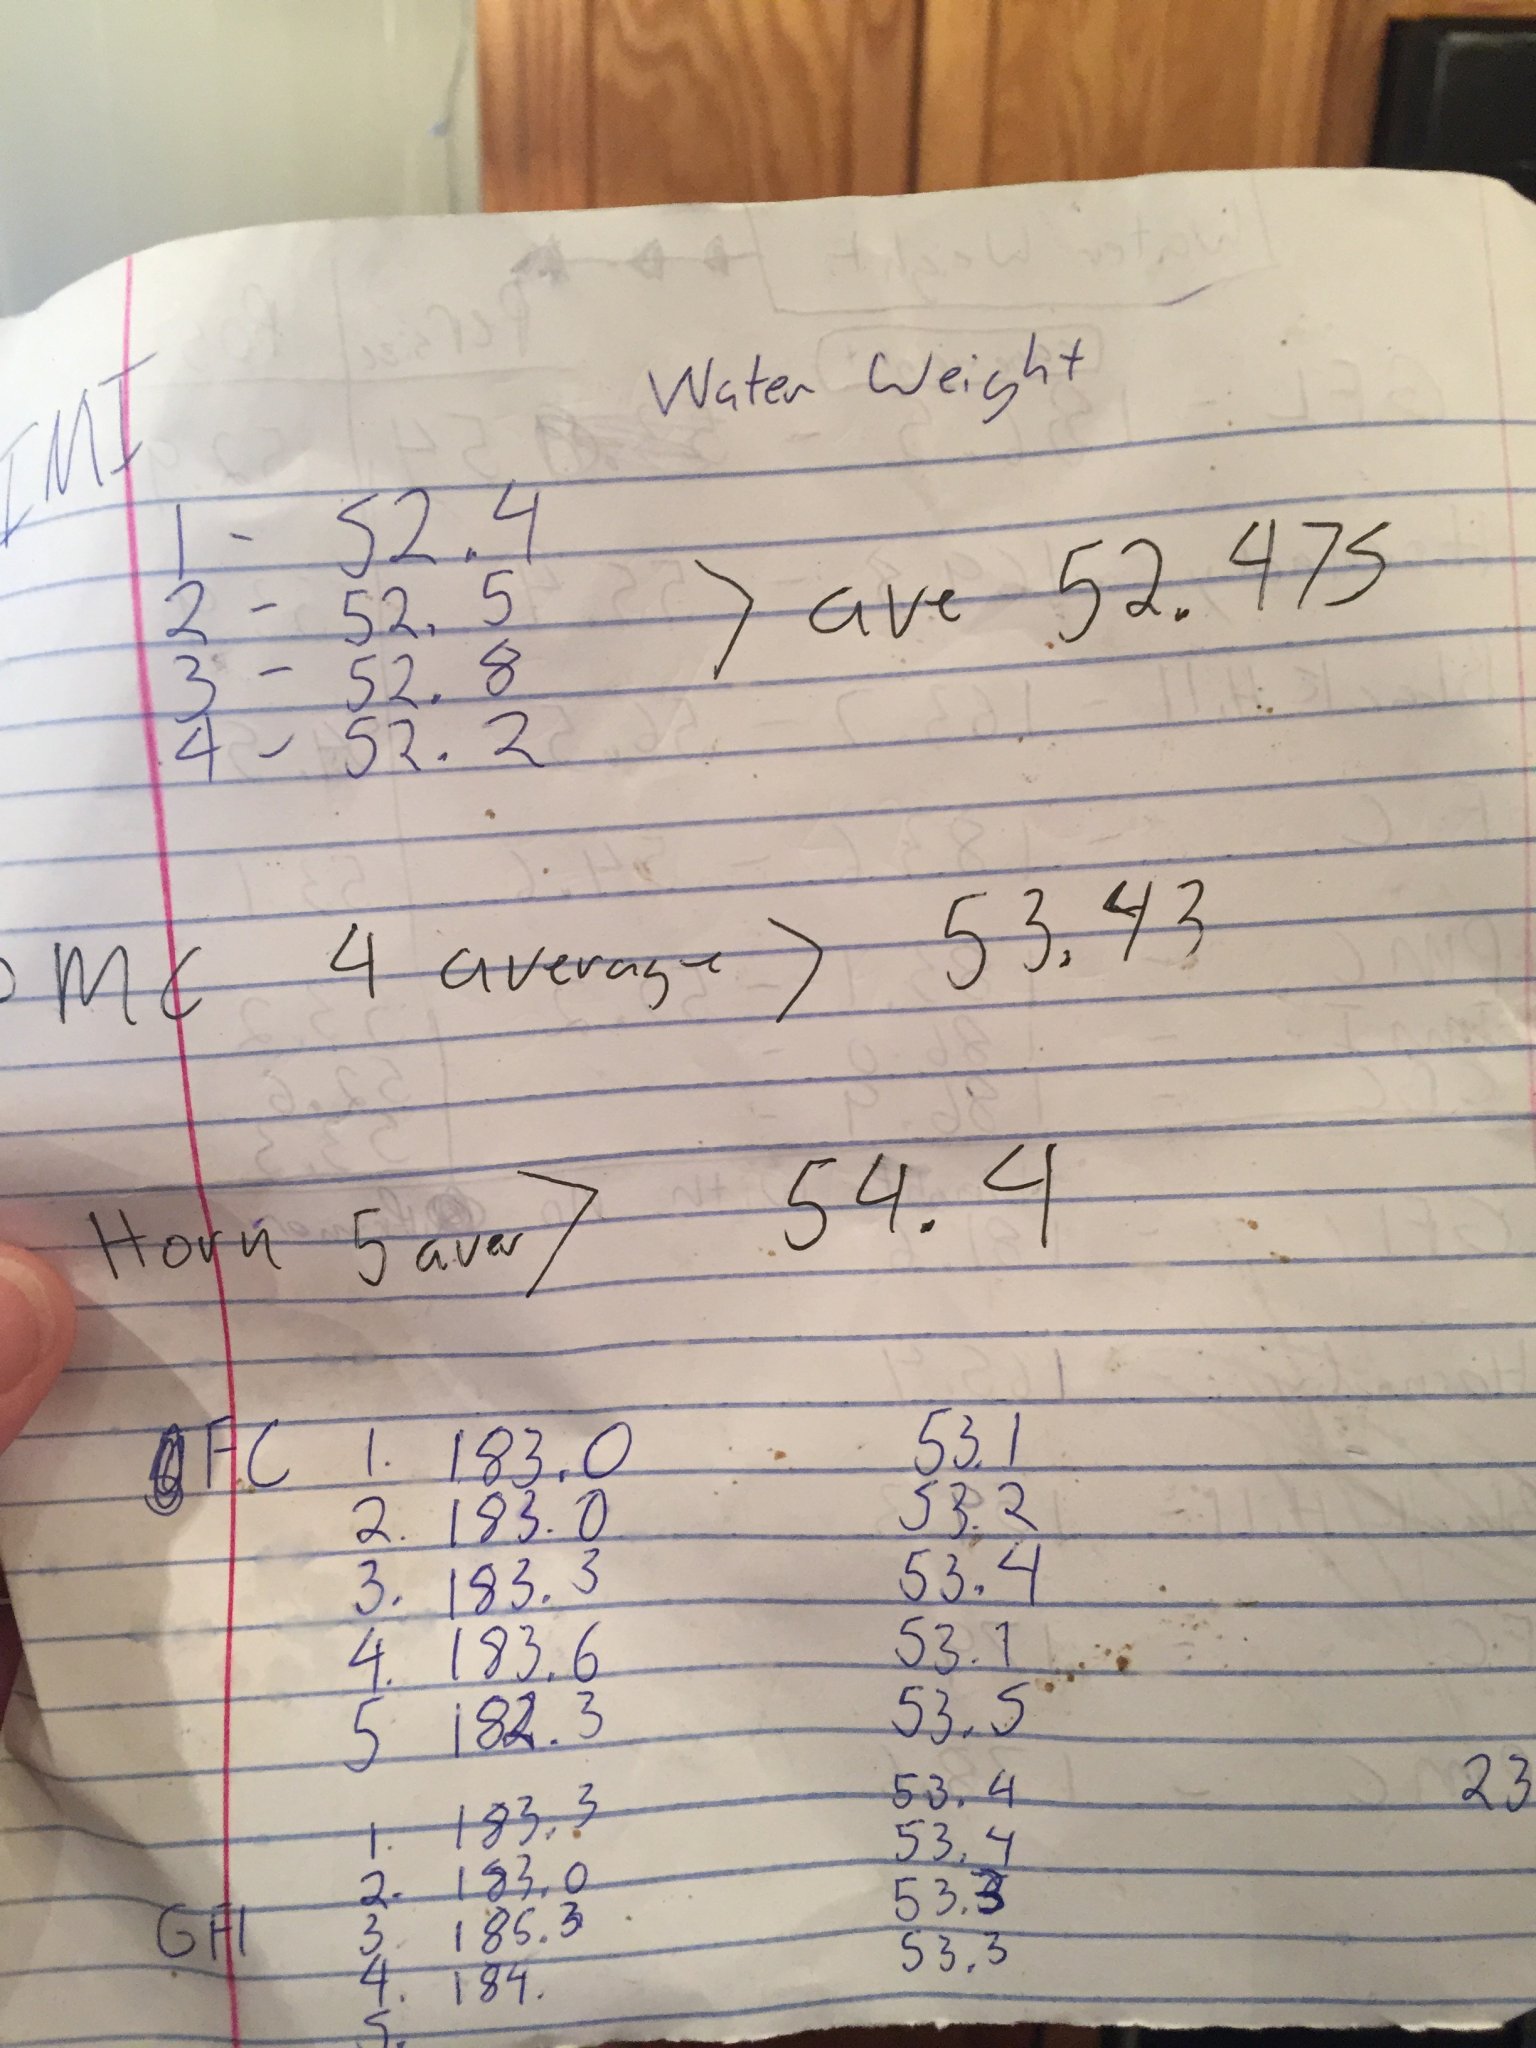 Water Weight
IMI
1 - 52.4
2 - 52.5 > ave 52.475
3 - 52.8
4 - 52.2
PMC 4 average > 53.43
Horn 5 aver > 54.4
FC 1. 183.0 53.1
2. 183.0 53.2
3. 183.3 53.4
4. 183.6 53.1
5 182.3 53.5
1. 183.3 53.4
2. 183.0 53.4
GFI 3 185.3 53.3
4. 184. 53.3
5.
23